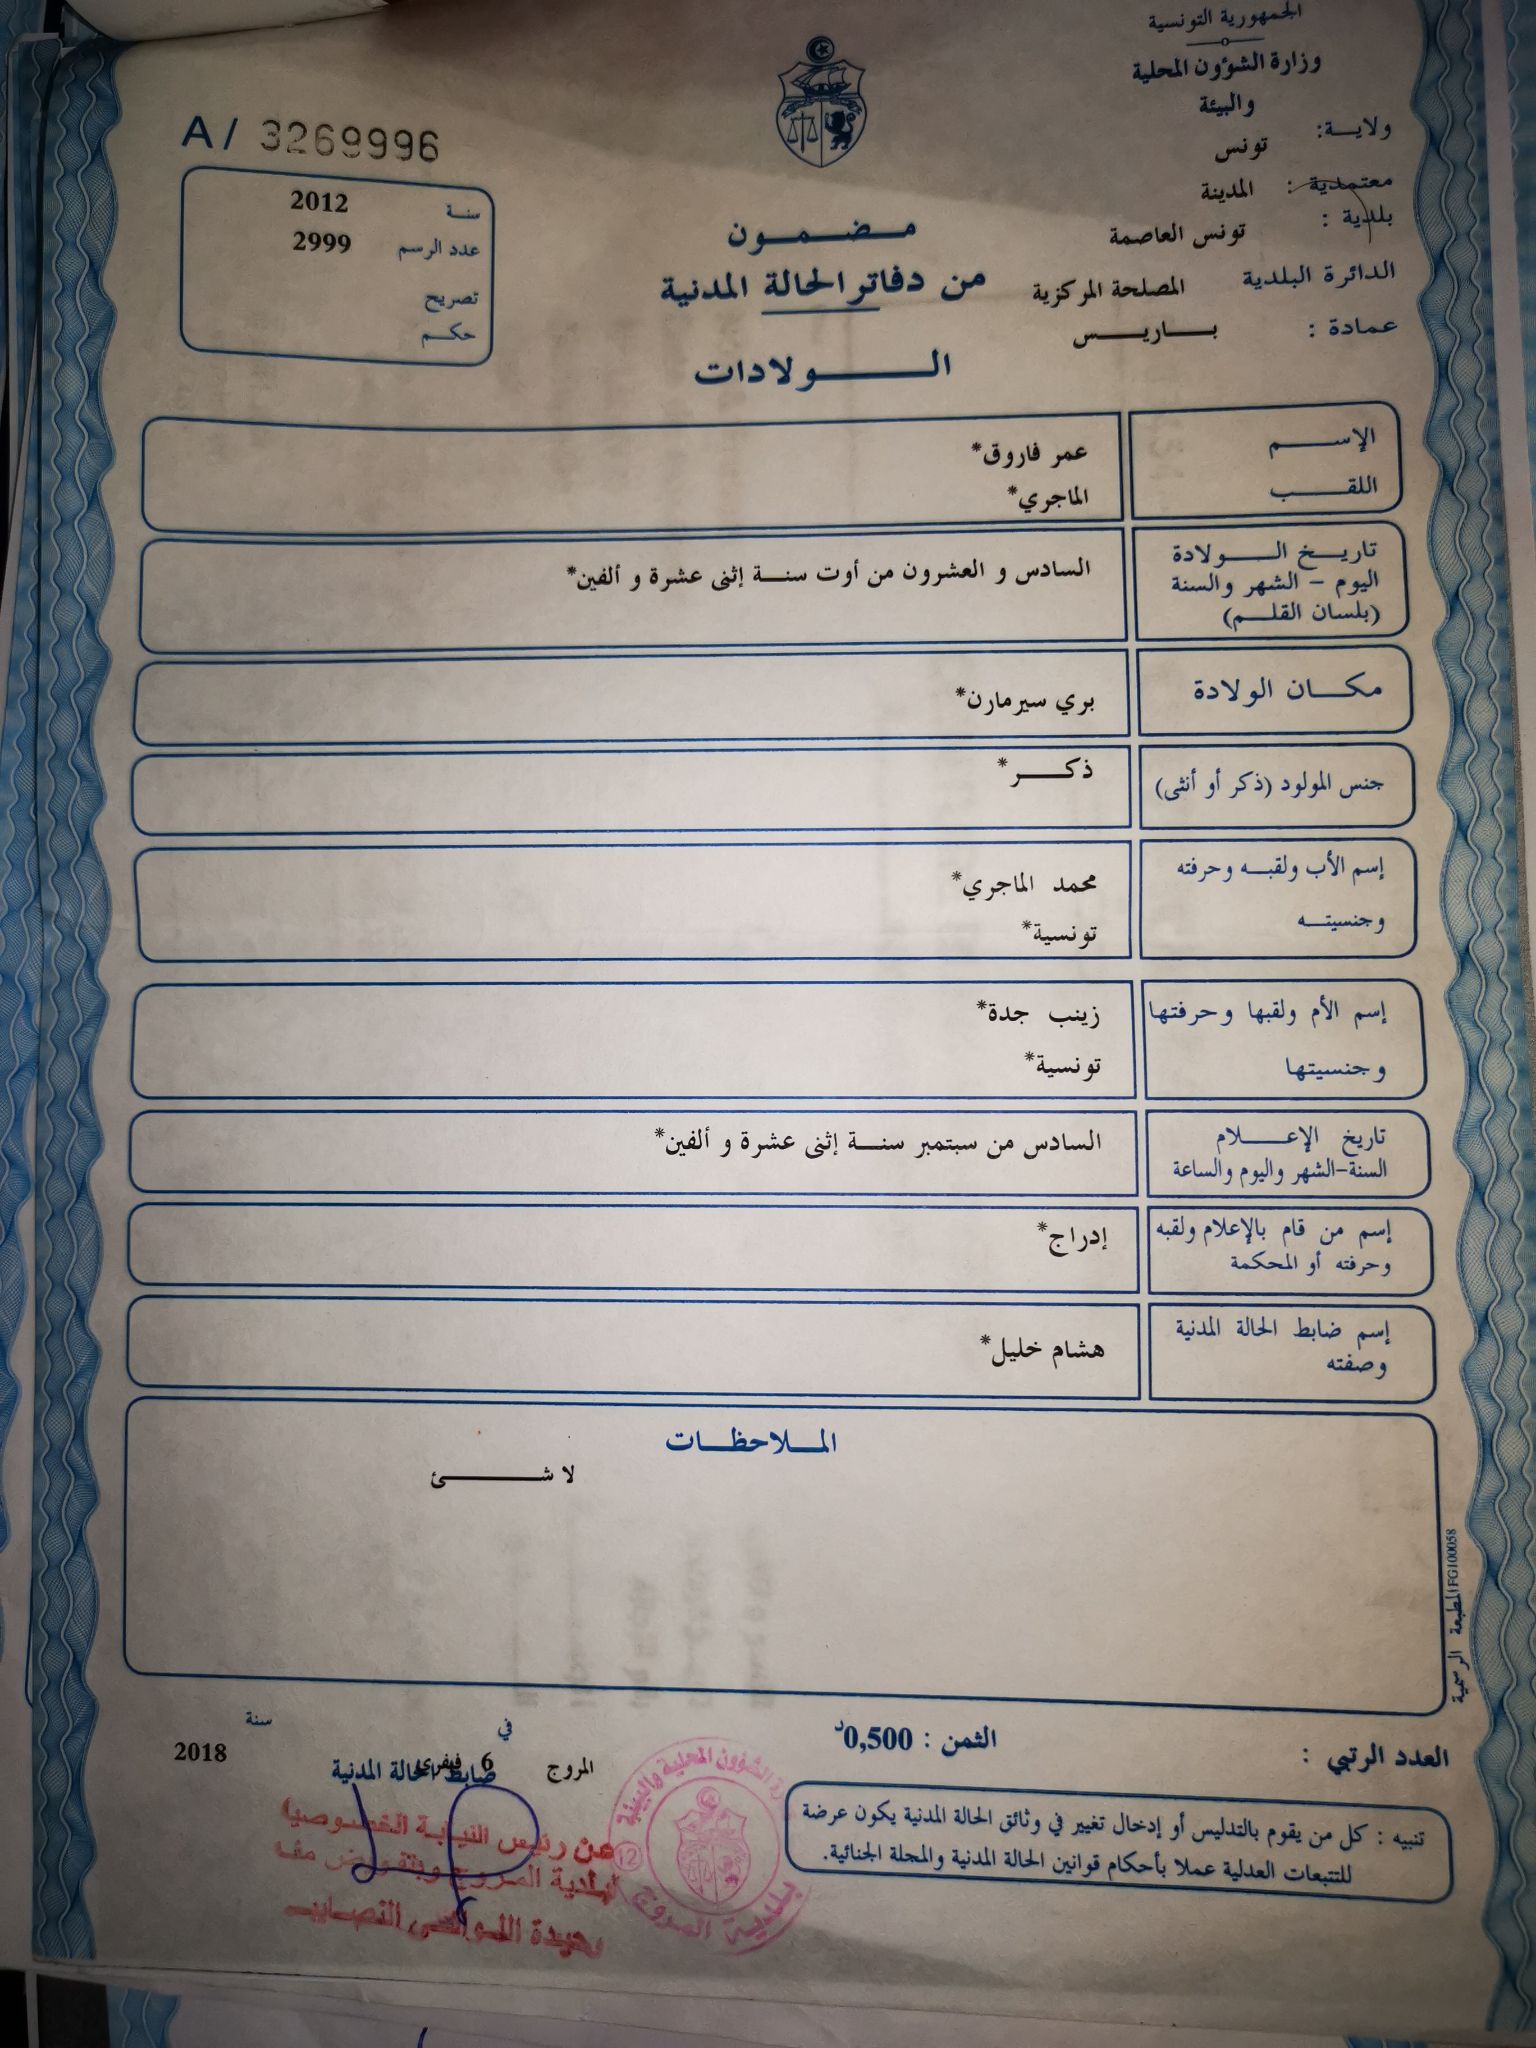 الجمهورية التونسية
وزارة الشؤون المحلية
والبيئة
ولاية: تونس
معتمدية : المدينة
بلدية : تونس العاصمة
الدائرة البلدية المصلحة المركزية
عمادة : باريس
A/ 3269996
سنة 2012
عدد الرسم 2999
تصريح
حكم
مضمون
من دفاتر الحالة المدنية
الولادات
الإسم عمر فاروق*
اللقب الماجري*
تاريخ الولادة
اليوم - الشهر والسنة
(بلسان القلم)
السادس و العشرون من أوت سنة إثنى عشرة و ألفين*
مكان الولادة بري سيرمارن*
جنس المولود (ذكر أو أنثى) ذكر*
إسم الأب ولقبه وحرفته محمد الماجري*
وجنسيته تونسية*
إسم الأم ولقبها وحرفتها زينب جدة*
وجنسيتها تونسية*
تاريخ الإعلام
السنة-الشهر واليوم والساعة
السادس من سبتمبر سنة إثنى عشرة و ألفين*
إسم من قام بالإعلام ولقبه
وحرفته أو المحكمة
إدراج*
إسم ضابط الحالة المدنية
وصفته
هشام خليل*
الملاحظات
لا شئ
المطبعة الرسمية FG100058
العدد الرتبي :
الثمن : 0,500د
المروج في 6 فيفري سنة 2018
ضابط الحالة المدنية
تنبيه : كل من يقوم بالتدليس أو إدخال تغيير في وثائق الحالة المدنية يكون عرضة
للتتبعات العدلية عملا بأحكام قوانين الحالة المدنية والمجلة الجنائية.
الشؤون المحلية والبيئة
12
بلدية المروج
عن رئيس النيابة الخصوصية
لبلدية المروج وبتفويض منه